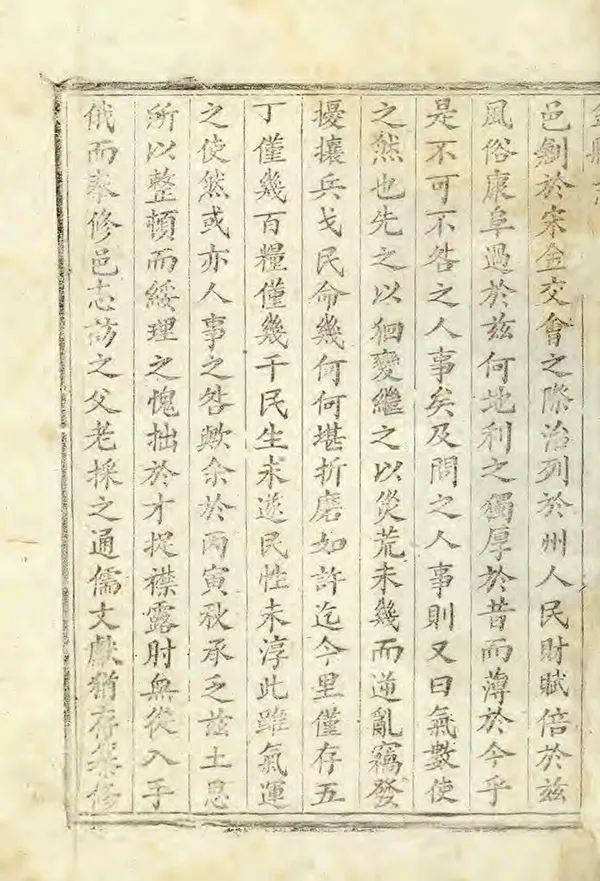 邑剏於宋金交會之際治列於州人民財賦倍於茲
風俗康阜過於茲何地利之獨厚於昔而薄於今乎
是不可不咎之人事矣及問之人事則又曰氣數使
之然也先之以徊變繼之以災荒未幾而逆亂竊發
擾攘兵戈民命幾何何堪折磨如許迄今里僅存五
丁僅幾百糧僅幾千民生未遂民性未淳此雖氣運
之使然或亦人事之咎歟余於丙寅秋承乏茲土思
所以整頓而綏理之愧拙於才捉襟露肘無從入手
俄而奉修邑志訪之父老採之通儒文獻猶存纂修